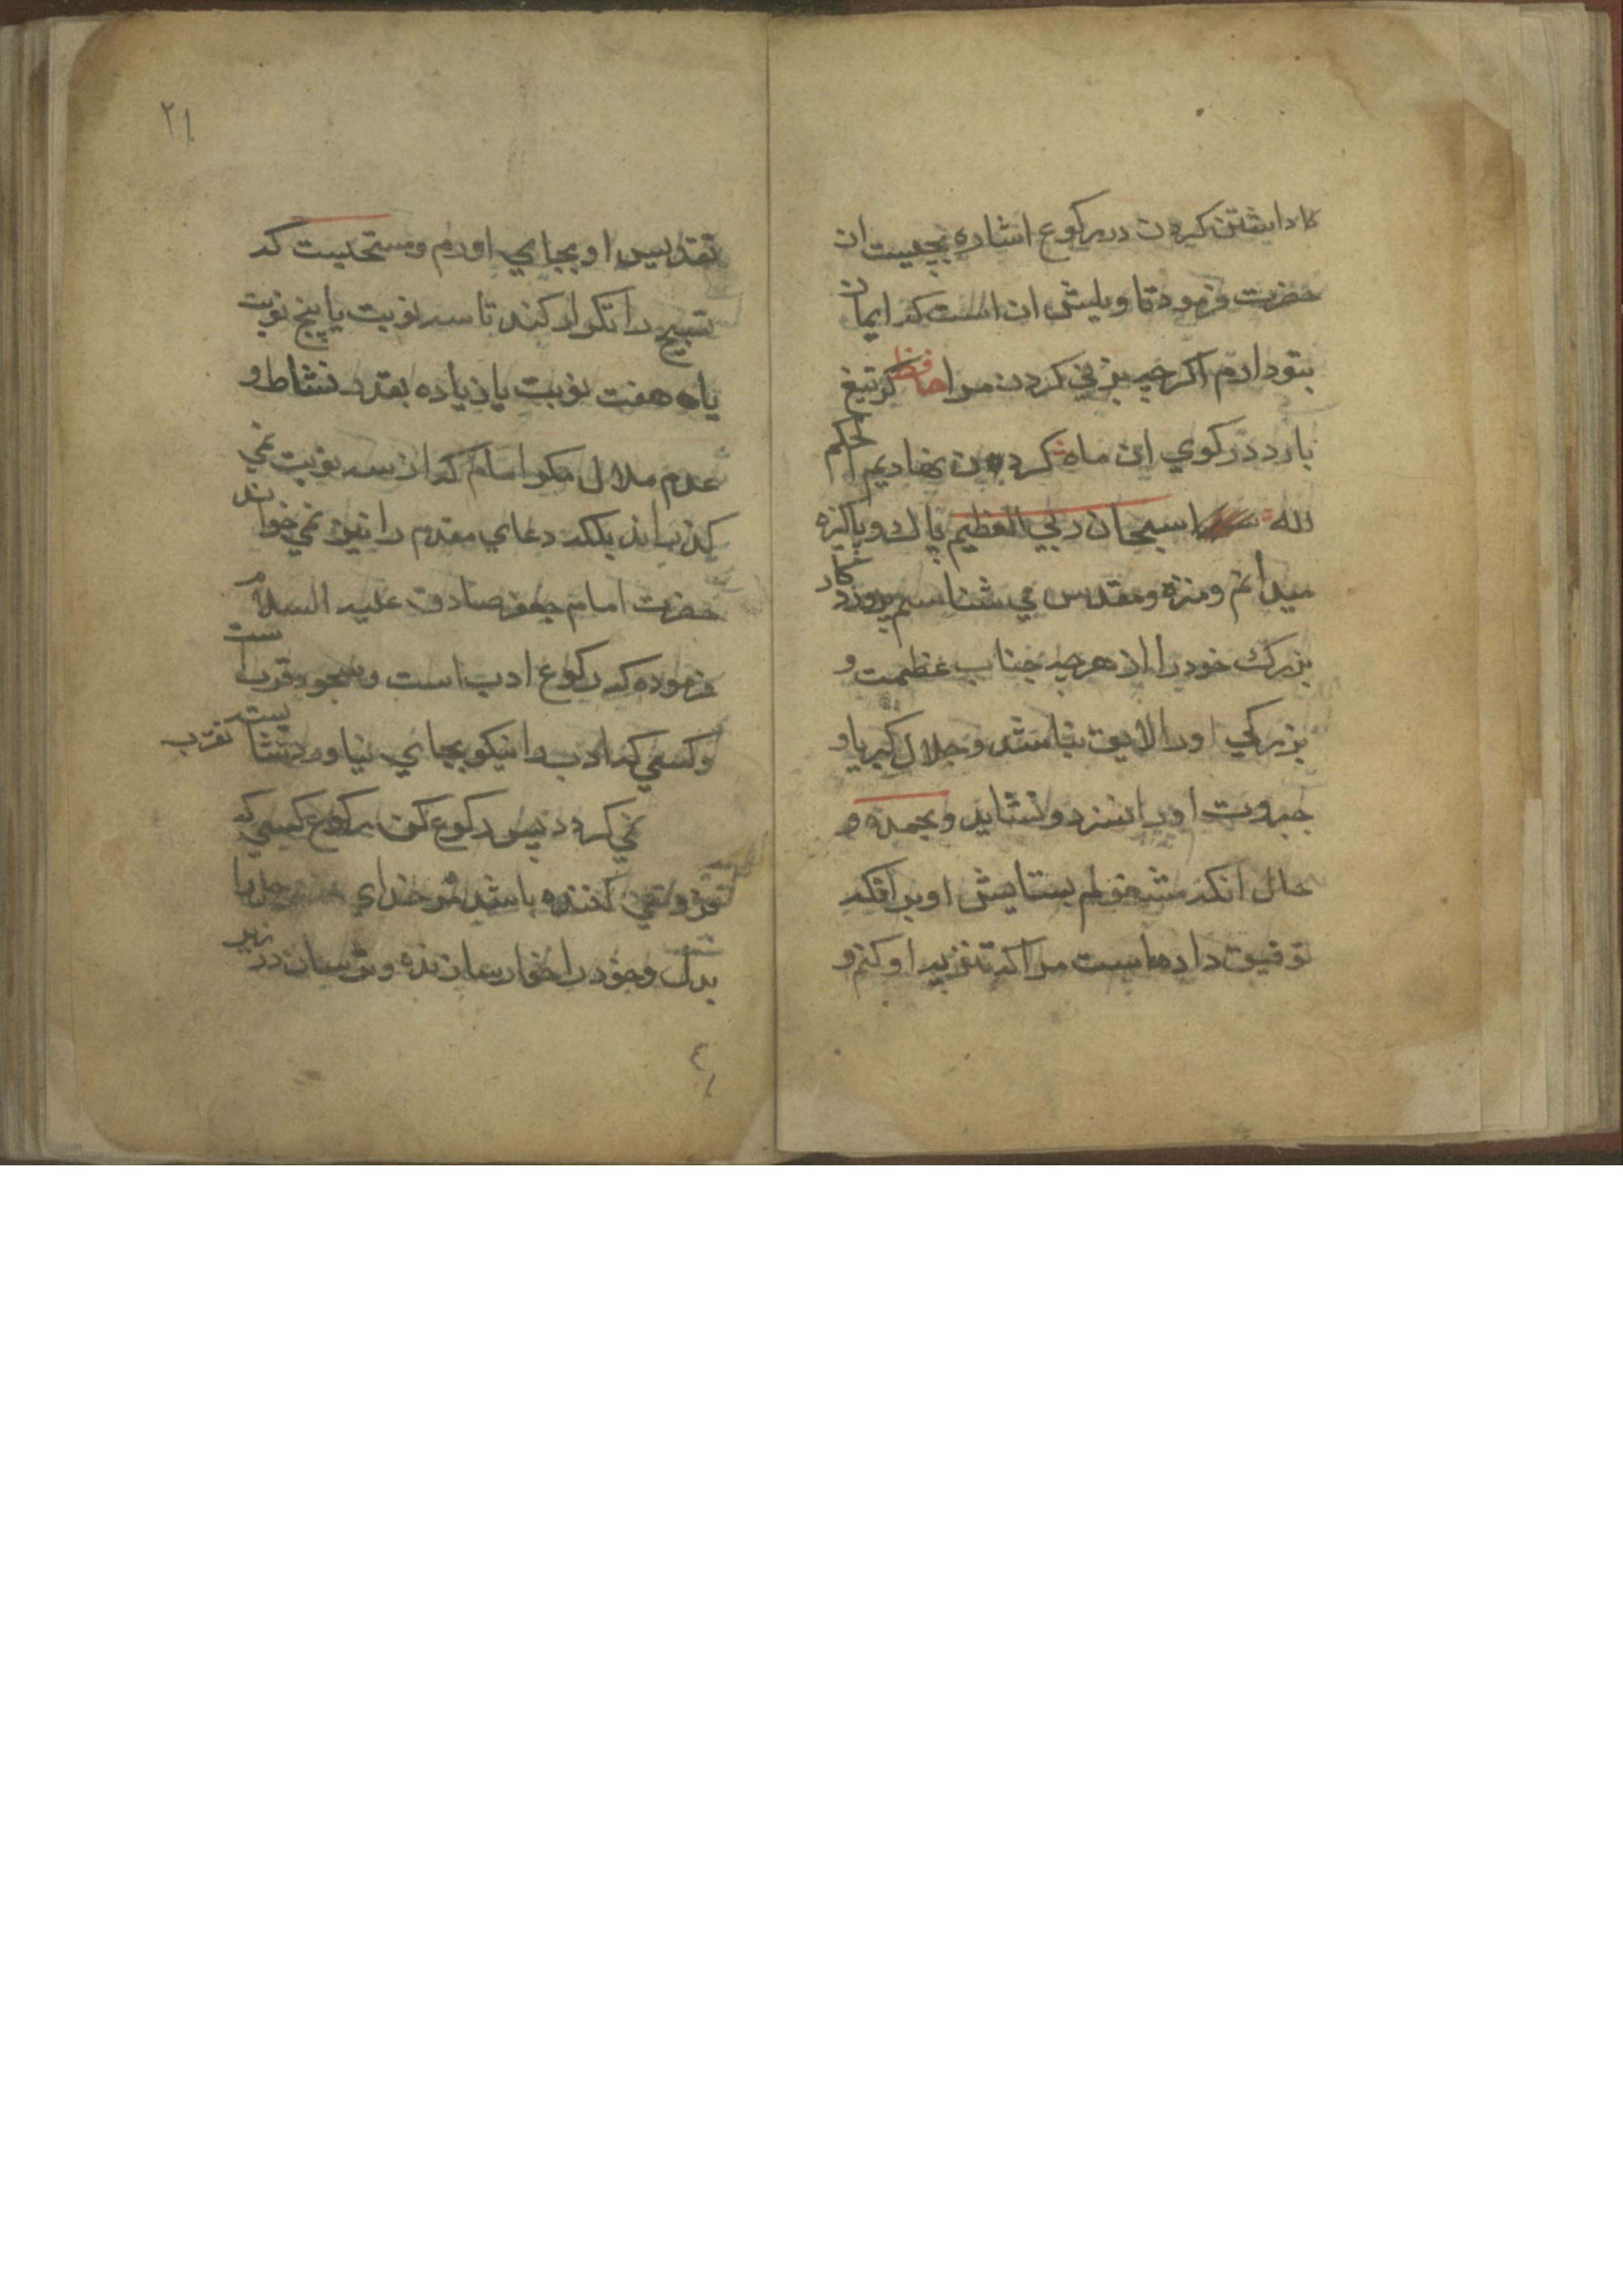 کا داشتن کردن در رکوع اشاره بچیست ان
حضرت فرمود تاویلش ان است که ایمان
بتو دارم اکر چه بزنی کردن مرا حافظ کر تیغ
بارد در کوی ان ماه کردن نهادیم الحکم
لله سبحان ربي العظیم پاك و پاکیزه
میدانم و منزه و مقدس می شناسم پروردکار
بزرك خود را از هر چه جناب عظمت و
بزرکی او را لایق نباشد و جلال کبریا و
جبروت او را نسزد و نشاید و بحمده و
حال انکه مشغولم بستایش او بر انکه
توفیق داده است مرا که تنزیه او کنم و
۲۱
تقدیس او بجای اورم و مستحبست که
تسبیح را تکرار کند تا سه نوبت یا پنج نوبت
یا هفت نوبت یا زیاده بقدر نشاط و
عدم ملال مکر امام که از سه نوبت نمی
کذراند بلکه دعای مقدم را نیز نمی خواند
حضرت امام جعفر صادق علیه السلام
فرموده که رکوع ادب است و سجود قرب است
و کسی که ادب را نیکو بجای نیاورد شایسته تقرب
نمی کردد پس رکوع کن رکوع کسی که
فروتنی کننده باشد مر خدای را
بدل و خود را خوار سازنده و ترسان در زیر
٤١